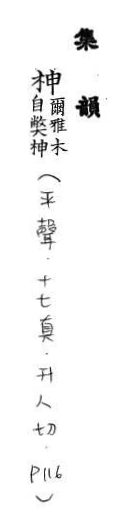 集韻
柛爾雅木自獘柛(平聲.十七真.升人切.P116)